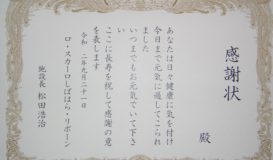 感謝状
殿
あなたは日々健康に気を付け
今日まで元気に過してこられ
ました
いつまでもお元気でいて下さ
い
ここに長寿を祝して感謝の意
を表します
令和二年九月二十一日
ロ・スカーロしばはら・リボーン
施設長 松田浩治